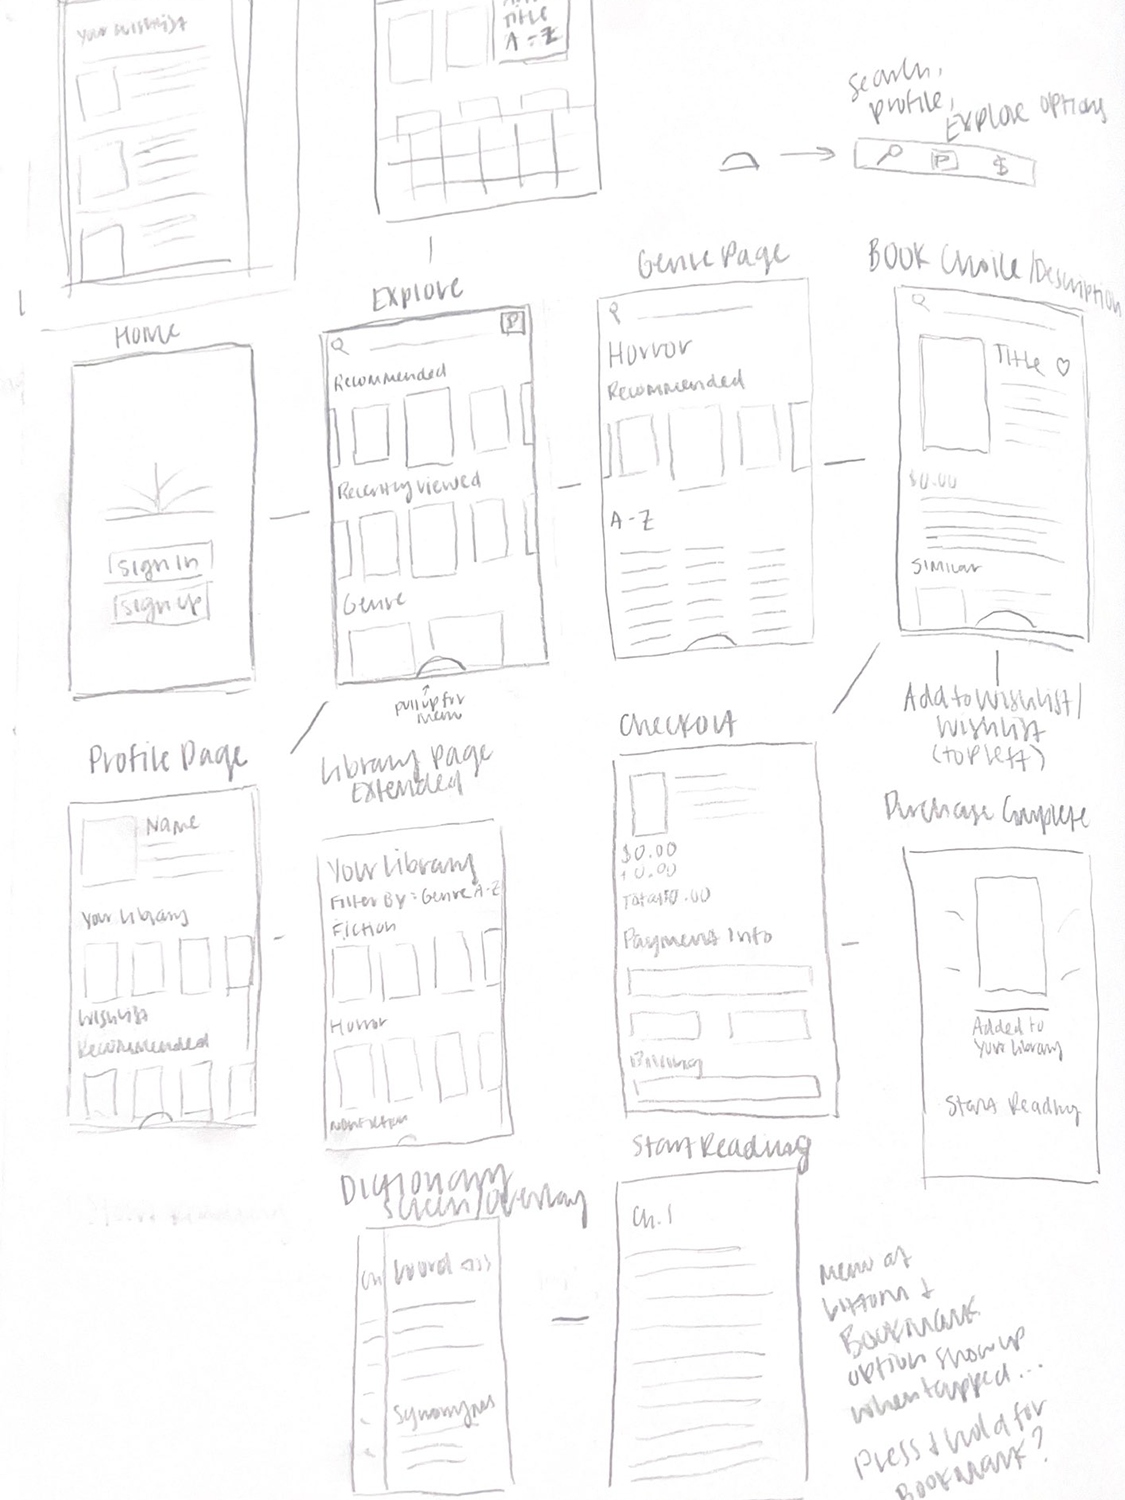 Your Wishlist
Title
A-Z
Search,
profile,
Explore options
P
$
Home
Sign In
Sign Up
Explore
P
Recommended
Recently viewed
Genre
pull up for
menu
Genre Page
Horror
Recommended
A-Z
Book Choice/Description
Title
$0.00
Similar
Add to Wishlist/
Wishlist
(top left)
Profile Page
Name
Your Library
Wishlist
Recommended
Library Page
Extended
Your Library
Filter By: Genre A-Z
Fiction
Horror
Nonfiction
Checkout
$0.00
+0.00
Total $0.00
Payment Info
Billing
Purchase Complete
Added to
Your Library
Start Reading
Dictionary
Screen/Overlay
Ch
Word
Synonyms
Start Reading
Ch. 1
Menu at
bottom +
Bookmark
option show up
when tapped...
Press + hold for
Bookmark?